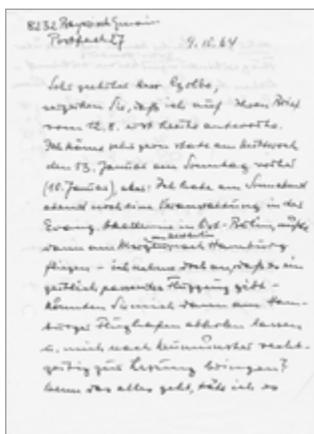 8232 Bayrisch Gmain
Postfach 27 9.10.64
Sehr geehrter Herr
verzeihen Sie, daß ich auf Ihren Brief
vom 12.8. erst heute antworte.
Ich käme sehr gern statt am Mittwoch
den 13. Januar am Sonntag vorher
(10. Januar), aber: Ich habe am Sonnabend
abend noch eine Veranstaltung in der
Evang. Akademie in Ost-Berlin, müßte
dann am nach Hamburg
fliegen – ich nehme doch an, daß es ein
zeitlich passendes Flugzeug gibt –
könnten Sie mich dann am Ham-
burger Flughafen abholen lassen
u. mich nach Neumünster recht-
zeitig zur Lesung bringen?
Wenn das alles geht, täte ich es